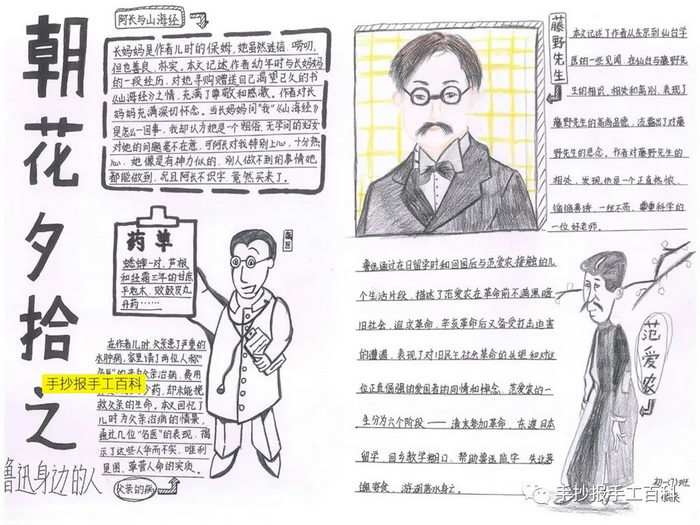 朝花夕拾之
鲁迅身边的人
阿长与山海经
长妈妈是作者儿时的保姆,她虽然迷信、唠叨,
但也善良、朴实。本文记述作者幼年时与长妈妈
的一段经历,对她寻购赠送自己渴望已久的书
《山海经》之情,充满了尊敬和感激。作者对长
妈妈充满深切怀念。当长妈妈问"我"《山海经》
是怎么一回事,我却认为她是个粗俗、无学问的妇女
对她的问题毫不在意,可阿长对我特别上心,十分热
心,她像是有神力似的,别人做不到的事情她
都能做到,况且阿长不识字竟然买来了。
药单
蟋蟀一对、芦根
和经霜三年的甘蔗
平地木、败鼓皮丸
丹药……
在作者儿时父亲患了严重的
水肿病,家里请了两位人称"
手抄报手工百科
救父亲的生命。本文回忆了
儿时为父亲治病的情景,
通过几位"名医"的表现,揭
示了这些人华而不实、唯利
是图、草菅人命的实质。
父亲的病
藤野先生
本文记述了作者从东京到仙台学
医的一些见闻,在仙台与藤野先
生的相识、相处和离别,表现了
藤野先生的高尚品德,流露出了对藤
野先生的思念。作者对藤野先生的
相处,发现他是一个正直热忱、
一位好老师。
鲁迅通过在日留学时和回国后与范爱农接触的几
个生活片段,描述了范爱农在革命前不满黑暗
旧社会、追求革命,辛亥革命后又备受打击迫害
的遭遇,表现了对旧民主社会革命的失望和对这
位正直倔强的爱国者的同情和悼念。范爱农的一
生分为六个阶段——清末参加革命、东渡日本
范爱农
初一(7)班
手抄报手工百科